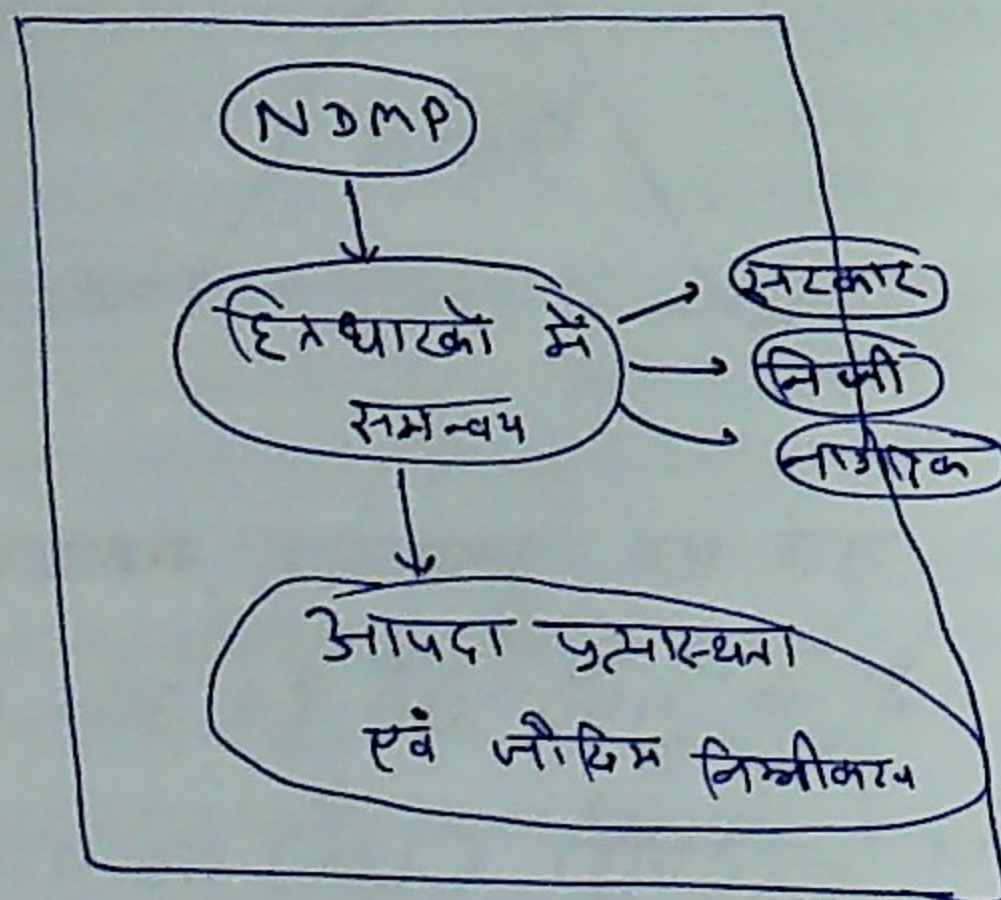 NDMP
हितधारको में
समन्वय
सरकार
निजी
नागरिक
आपदा प्रत्यास्थता
एवं जोखिम निम्नीकरण